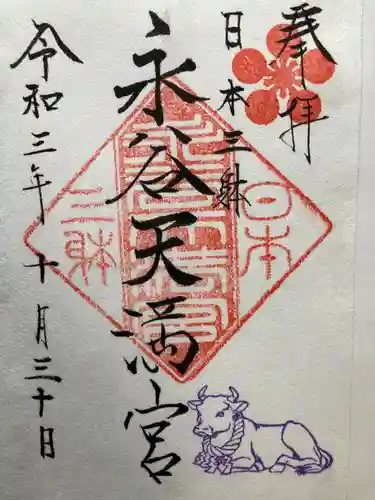 奉拝
日本三躰
永谷天満宮
令和三年 十月三十日
日本
三躰